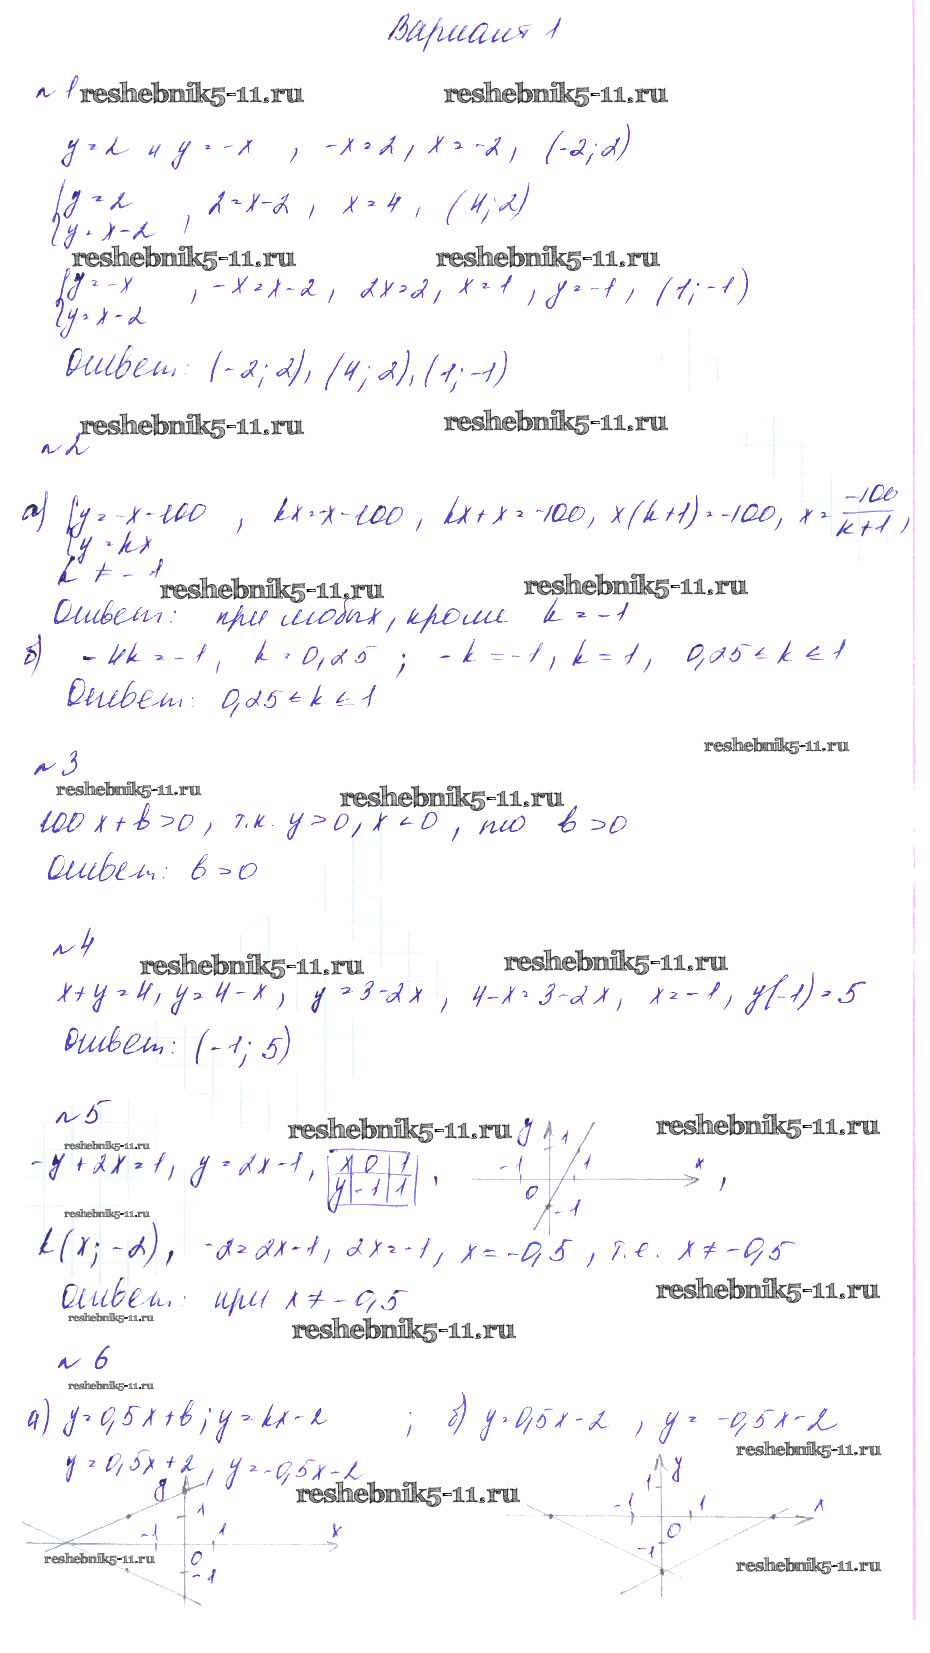 Вариант 1
№1 reshebnik5-11.ru reshebnik5-11.ru
y=2 и y=-x , -x=2, x=-2, (-2;2)
{y=2
y=x-2 , 2=x-2, x=4, (4;2)
reshebnik5-11.ru reshebnik5-11.ru
{y=-x
y=x-2 , -x=x-2, 2x=2, x=1, y=-1, (1;-1)
Ответ: (-2;2), (4;2), (1;-1)
reshebnik5-11.ru reshebnik5-11.ru
№2
а) {y=-x-100
y=kx , kx=-x-100, kx+x=-100, x(k+1)=-100, x=-100/(k+1),
k≠-1
reshebnik5-11.ru reshebnik5-11.ru
Ответ: при любых, кроме k=-1
б) -4k=-1, k=0,25; -k=-1, k=1, 0,25≤k≤1
Ответ: 0,25≤k≤1
reshebnik5-11.ru
№3
reshebnik5-11.ru reshebnik5-11.ru
100x+b>0, т.к. y>0, x<0, то b>0
Ответ: b>0
№4
reshebnik5-11.ru reshebnik5-11.ru
x+y=4, y=4-x, y=3-2x, 4-x=3-2x, x=-1, y(-1)=5
Ответ: (-1;5)
№5
reshebnik5-11.ru reshebnik5-11.ru
reshebnik5-11.ru
-y+2x=1, y=2x-1,
x 0 1
y -1 1
y 1 -1 1 x 0 -1
reshebnik5-11.ru
k(x;-2), -2=2x-1, 2x=-1, x=-0,5, т.е. x≠-0,5
Ответ: при x≠-0,5
reshebnik5-11.ru
reshebnik5-11.ru
reshebnik5-11.ru
№6
reshebnik5-11.ru
а) y=0,5x+b; y=kx-2 ; б) y=0,5x-2, y=-0,5x-2
y=0,5x+2, y=-0,5x-2
reshebnik5-11.ru
reshebnik5-11.ru
y 1 -1 1 x 0 -1
y 1 -1 1 x 0 -1
reshebnik5-11.ru
reshebnik5-11.ru